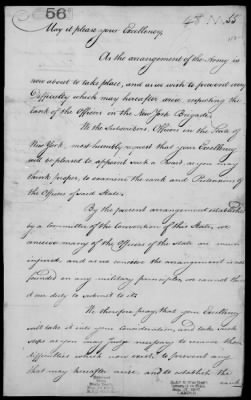 56
55
May it please your Excellency
As the arrangement of the Army is
now about to take place, and as we wish to prevent any
Difficulty which may hereafter arise, respecting the
Rank of the Officers in the New York Brigade,
We the Subscribers, Officers in the Line of
New York, most humbly request that your Excellency
will be pleased to appoint such a Board as you may
think proper, to examine the rank and Pretensions of
the Officers of said State.
By the present arrangement established
by a Committee of the Convention of this State, we
conceive many of the Officers of the State are much
injured, and as we conceive the arrangement is not
founded on any military principles, we cannot think
it our duty to submit to it.
We therefore pray, that your Excellency
will take it into your Consideration, and take such
steps as you may judge necessary to remove those
difficulties which now exist, to prevent any
that may hereafter arise, and to establish the
rank